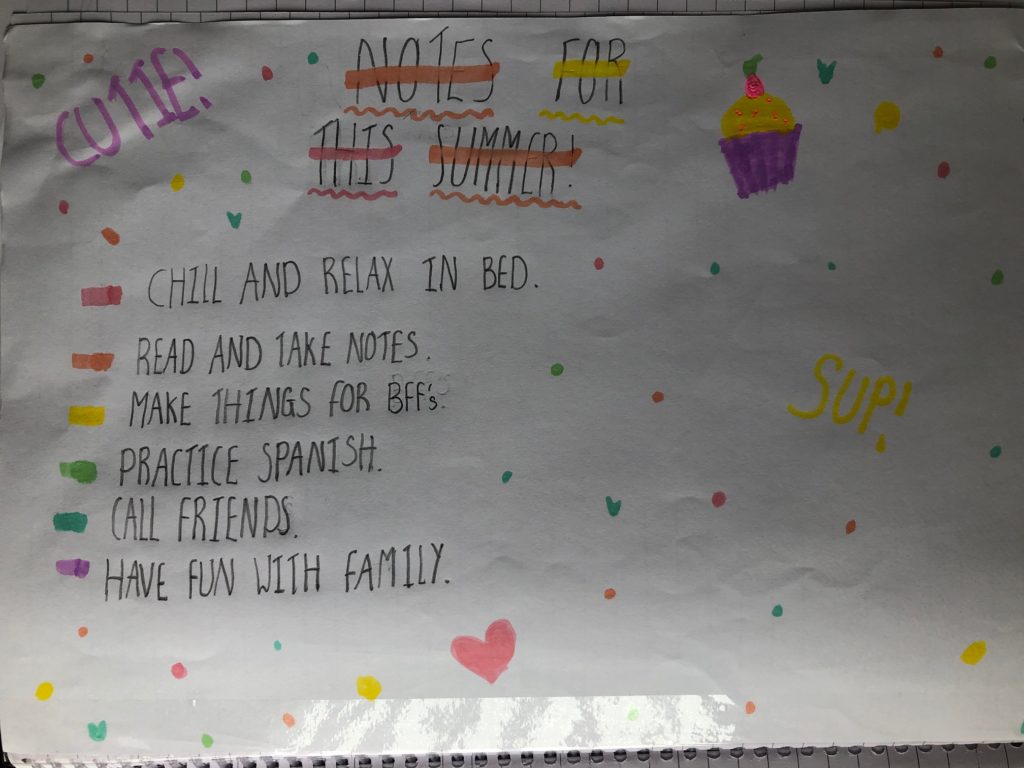 CUTIE!
NOTES FOR
THIS SUMMER!
CHILL AND RELAX IN BED.
READ AND TAKE NOTES.
MAKE THINGS FOR BFF's.
PRACTICE SPANISH.
CALL FRIENDS.
HAVE FUN WITH FAMILY.
SUP!